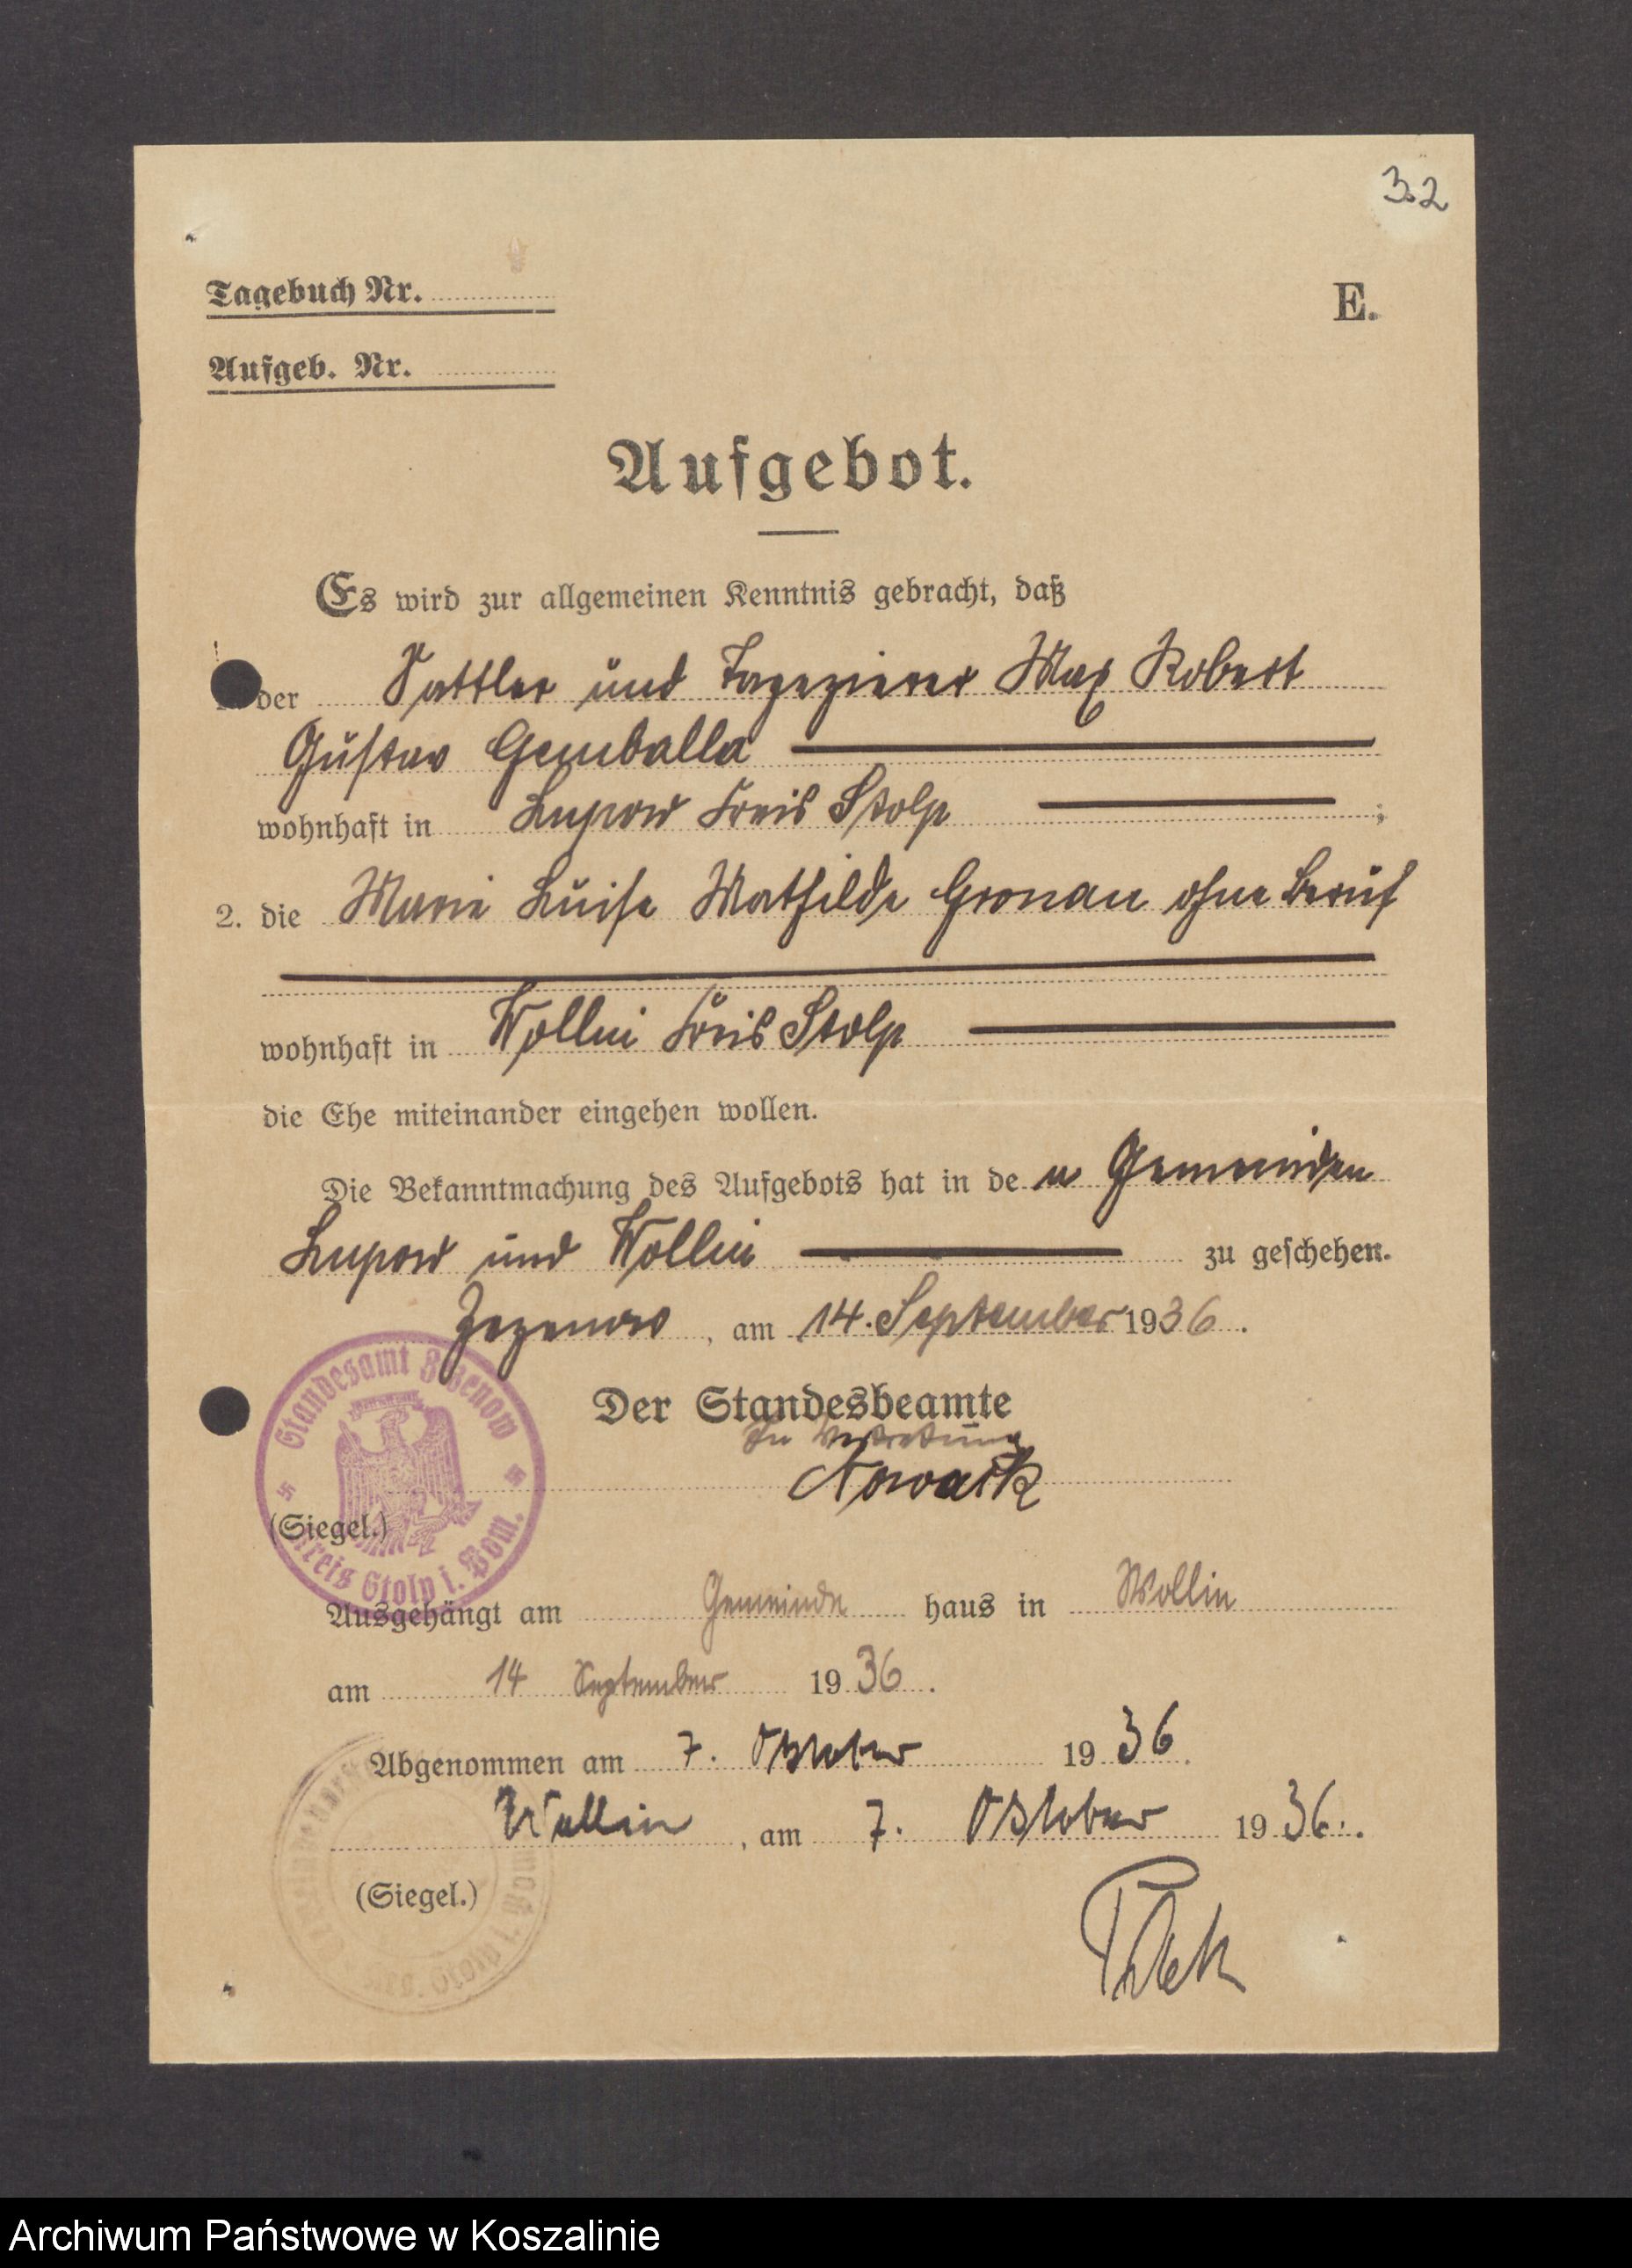 32
Tagebuch Nr.
E.
Aufgeb. Nr.
Aufgebot.
Es wird zur allgemeinen Kenntnis gebracht, daß
der Sattler und Tapezierer Max Robert
Gustav Gemballa
wohnhaft in Lupow Kreis Stolp ;
2. die Marie Luise Mathilde Gronau ohne Beruf
wohnhaft in Wollin Kreis Stolp
die Ehe miteinander eingehen wollen.
Die Bekanntmachung des Aufgebots hat in den Gemeinden
Lupow und Wollin zu geschehen.
Zezenow, am 14. September 1936.
Standesamt Zezenow
Kreis Stolp i. Pom.
Der Standesbeamte
In Vertretung
Nowack
(Siegel.)
Ausgehängt am Gemeinde haus in Wollin
am 14 September 1936.
Abgenommen am 7. Oktober 1936.
Wollin, am 7. Oktober 1936.
(Siegel.)
Archiwum Państwowe w Koszalinie